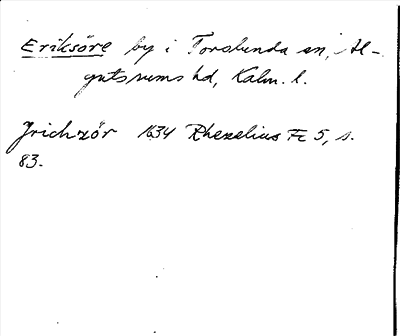 Eriksöre by i Torslunda sn, Al-
gutsrums hd, Kalm. l.
Jrichzör 1634 Rhezelius Fc 5, s.
83.